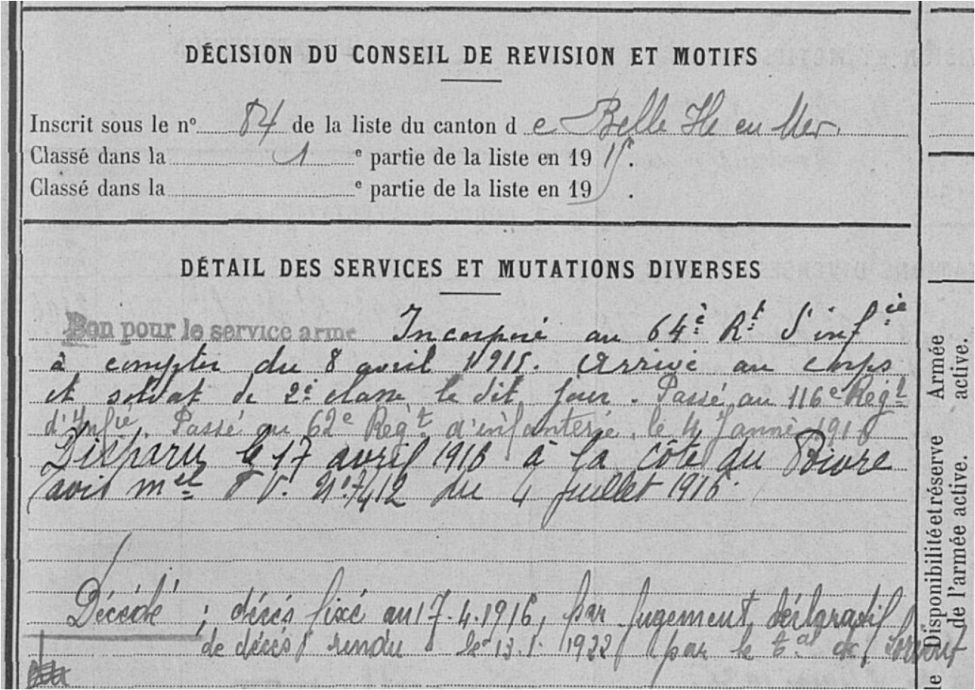 DÉCISION DU CONSEIL DE REVISION ET MOTIFS
Inscrit sous le nº 84 de la liste du canton d e Belle Ile en Mer.
Classé dans la 1 e partie de la liste en 19 15.
Classé dans la e partie de la liste en 19 .
DÉTAIL DES SERVICES ET MUTATIONS DIVERSES
Bon pour le service armé Incorporé au 64è Rt d'infie
à compter du 8 avril 1915. Arrivé au corps
et soldat de 2è classe le dit jour. Passé au 116e Régt
d'Infie. Passé au 62e Régt d'infanterie le 4 Janv 1916
Disparu le 17 avril 1916 à la côte du Poivre
avis mel P.V. Nº 7412 du 4 juillet 1916.
Décédé ; décès fixé au 17.4.1916, par jugement déclaratif
de décès rendu le 13.1.1922 par le tal de Lorient
Disponibilité et réserve
de l'armée active.
Armée
active.
le